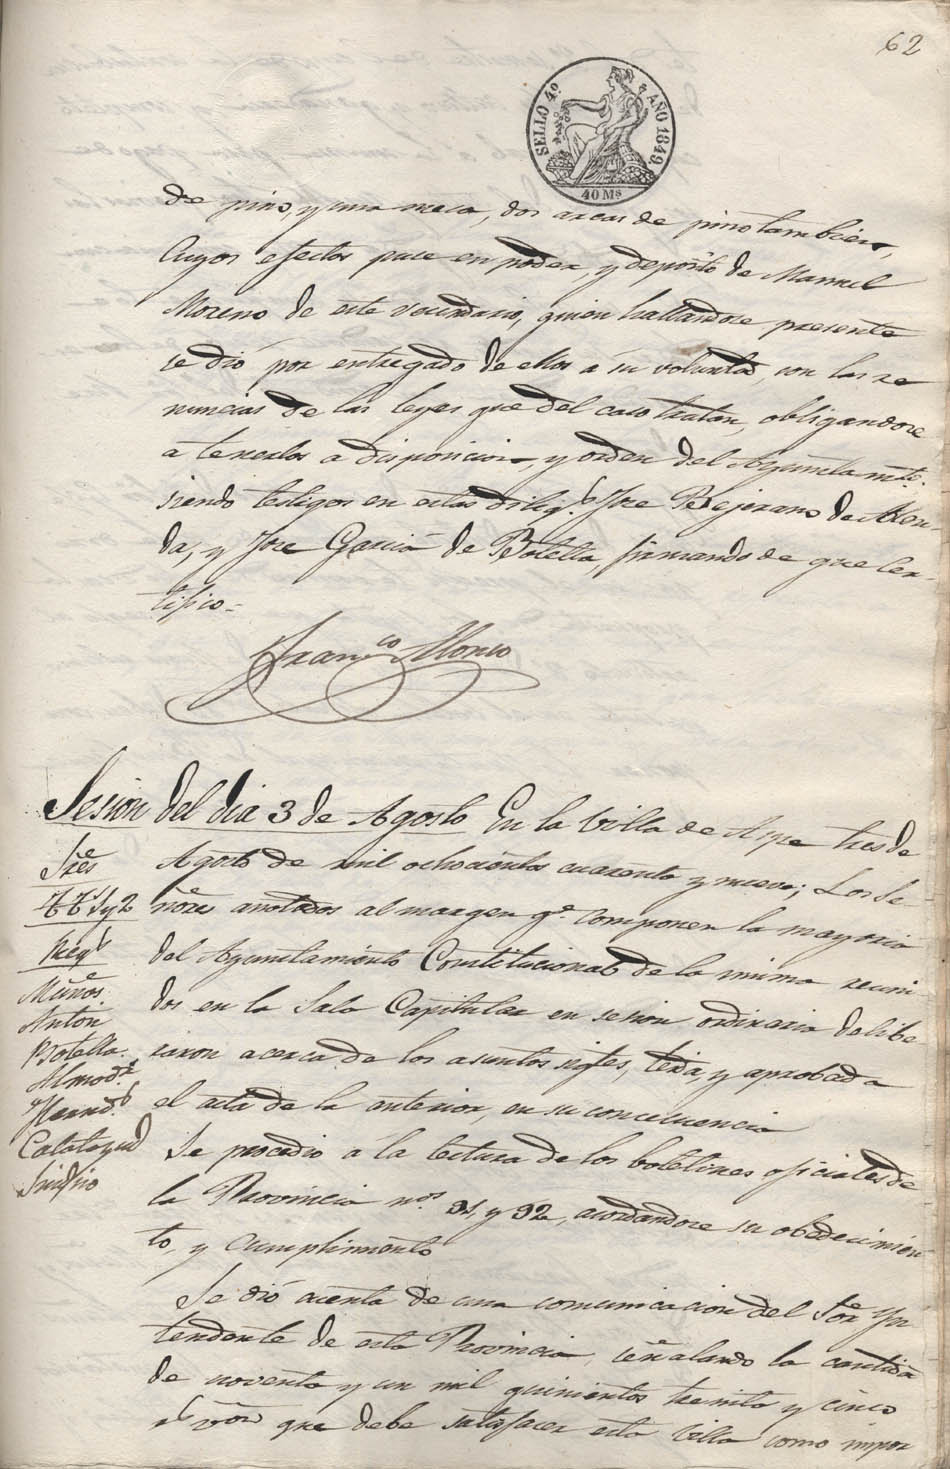 62
SELLO 4º AÑO 1849.
40 Ms
de pino, y una mesa, dos arcas de pino tambien,
Cuyos efectos puse en poder, y deposito de Manuel
Moreno de este vecindario, quien hallandose presente
se dió por entregado de ellos á su voluntad, con las re
nuncias de las leyes que del caso tratan, obligandose
a tenerlos a disposicion, y orden del Ayuntamto.
siendo testigos en estas diligs. Jose Bejerano de
da, y Jose Garcia de Botella, firmando de que Cer-
tifico=
Franco Alonso
Sesion del dia 3 de Agosto En la Villa de Aspe tres de
Agosto de mil ochocientos cuarenta y nueve; Los Se
ñores anotados al margen qe. componen la mayoria
del Ayuntamiento Constitucional de la misma reuni
dos en la Sala Capitular en sesion ordinaria delibe
raron acerca de los asuntos sigtes, leida, y aprobada
el acta de la anterior, en su consecuencia
Sres
TT 1 y 2
Regs
Muños.
Anton
Botella.
Almodr
Hernds.
Calatayud
Sindico
Se procedio á la lectura de los boletines oficiales de
la Provincia nos. 91, y 92, acordandose su obedecimien
to, y cumplimiento
Se dió cuenta de una comunicacion del Sor Yn
tendente de esta Provincia, señalando la cantidad
de noventa y un mil quinientos treinta y cinco
rs von que debe satisfacer esta Villa como impor